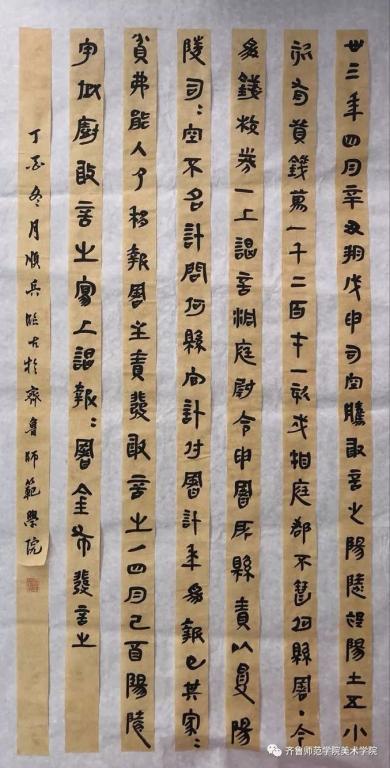 卅三年四月辛丑朔戊申司空騰敢言之陽陵褆陽士五小
欬有貲錢萬一千二百一欬戍洞庭郡不智何縣署·今
為錢校券一上謁言洞庭尉令申署所縣責以受陽
陵司=空不名計問何縣官計付署計年為報已其家=
貧弗能入乃移報署主責發敢言之/四月己酉陽陵
守丞廚敢言之寫上謁報=署金布發言之
丁酉冬月順兵臨古於齊魯師範學院
齐鲁师范学院美术学院